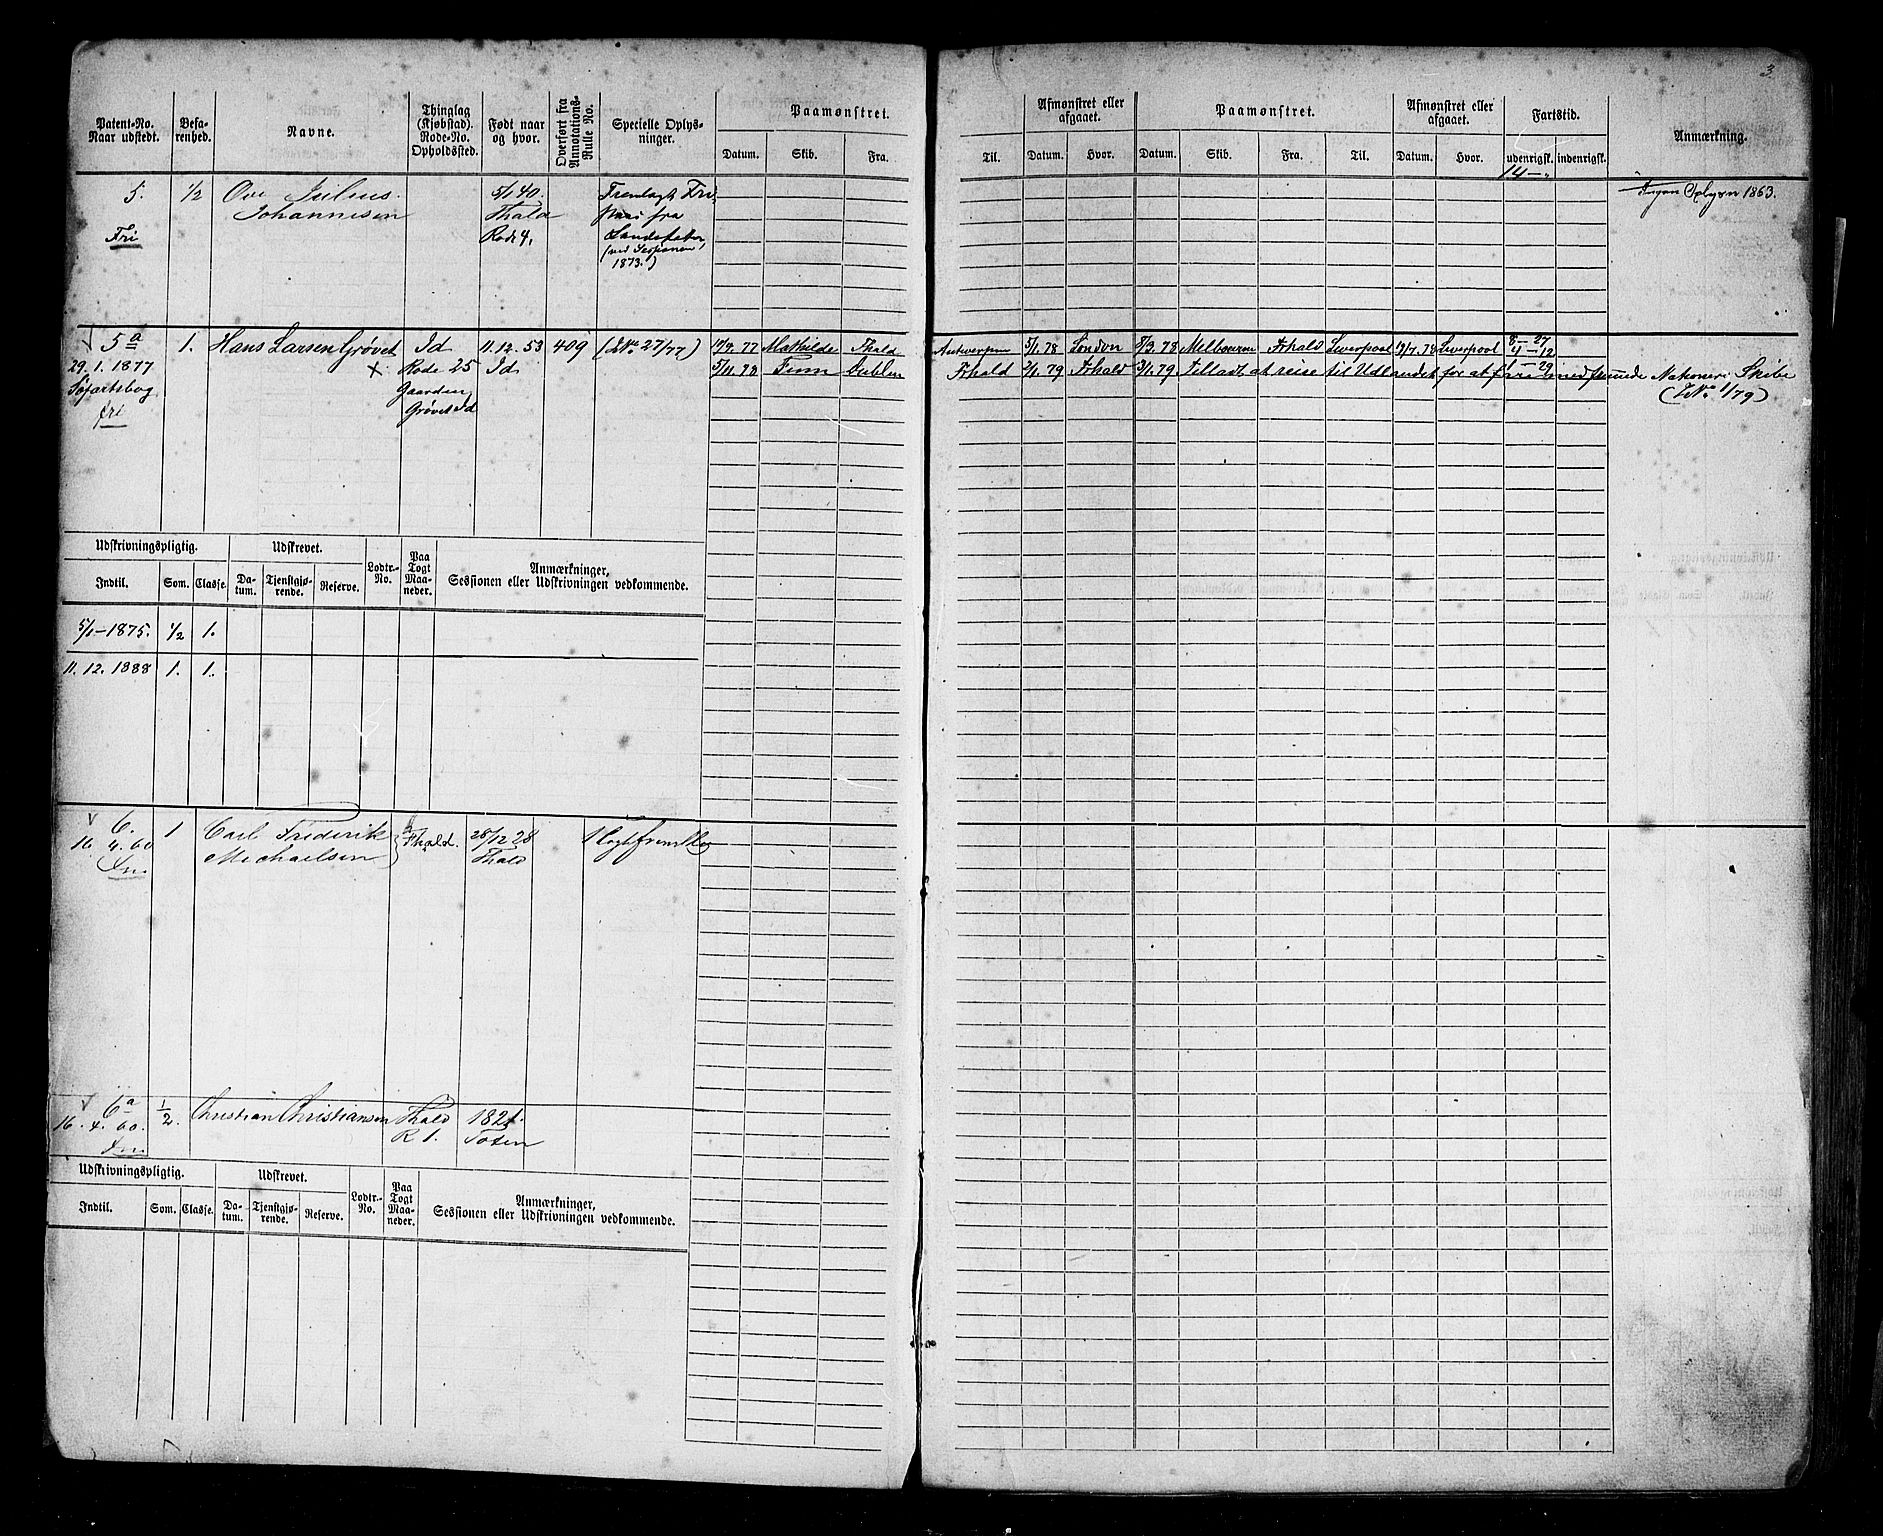 3.
Patent-No. Naar udstedt.
Befarenhed.
Navne.
Thinglag (Kjøbstad). Rode-No. Opholdssted.
Født naar og hvor.
Overført fra Annotations-Rulle No.
Specielle Oplysninger.
Paamønstret.
Datum. Skib. Fra.
Til.
Afmønstret eller afgaaet.
Datum. Hvor.
Paamønstret.
Datum. Skib. Fra. Til.
Afmønstret eller afgaaet.
Datum. Hvor.
Fartstid.
udenrigsk. indenrigsk.
Anmærkning.
14 —
5. 1/2 Ove Julius 5/1 40. Fremlagt Fri-
Johannesen Fhald pas fra
Fri Rode 4.
1873.)
1863.
5 a 1. Hans Larsen Grøvet Id 11.12.53 409 (27/77) Mathilde Fhald Antwerpen 5/1.78 London 8/3.78 Melbourne Frhald Liverpool Liverpool 8 — 27
4 — 12
29.1.1877 × Rode 25 Id 5/11.78 Finn Dublin Frhald 2/1.79 Frhald 3/1.79. Tilladt at reise til Udlandet for at fare med fremmede Nationers Skibe
1 — 29
Søfartsbog Gaarden (1/79)
fri Grøvet Id
Udskrivningspligtig. Udskrevet. Lodtr.-No. Paa Togt Maaneder. Anmærkninger, Sessionen eller Udskrivningen vedkommende.
Indtil. Som. Classe. Datum. Tjenstgjørende. Reserve.
5/1-1875. 1/2 1.
11.12.1888 1. 1.
6. 1 Carl Frederik Fhald. 28/12 28
16 4.60 Michaelsen Fhald
6 a 1/2. Christian Christiansen Fhald
16.4.60. R 1. Toten
Udskrivningspligtig. Udskrevet. Lodtr.-No. Paa Togt Maaneder. Anmærkninger, Sessionen eller Udskrivningen vedkommende.
Indtil. Som. Classe. Datum. Tjenstgjørende. Reserve.